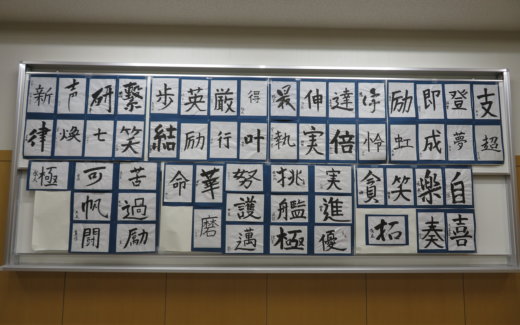 新声研繋歩英厳得最伸達伝励即登支
律煥七笑結励行叶執実倍怜虹成夢超
極可苦命華努挑実貪笑樂自
帆過護艦進拓奏喜
闘励磨邁極優